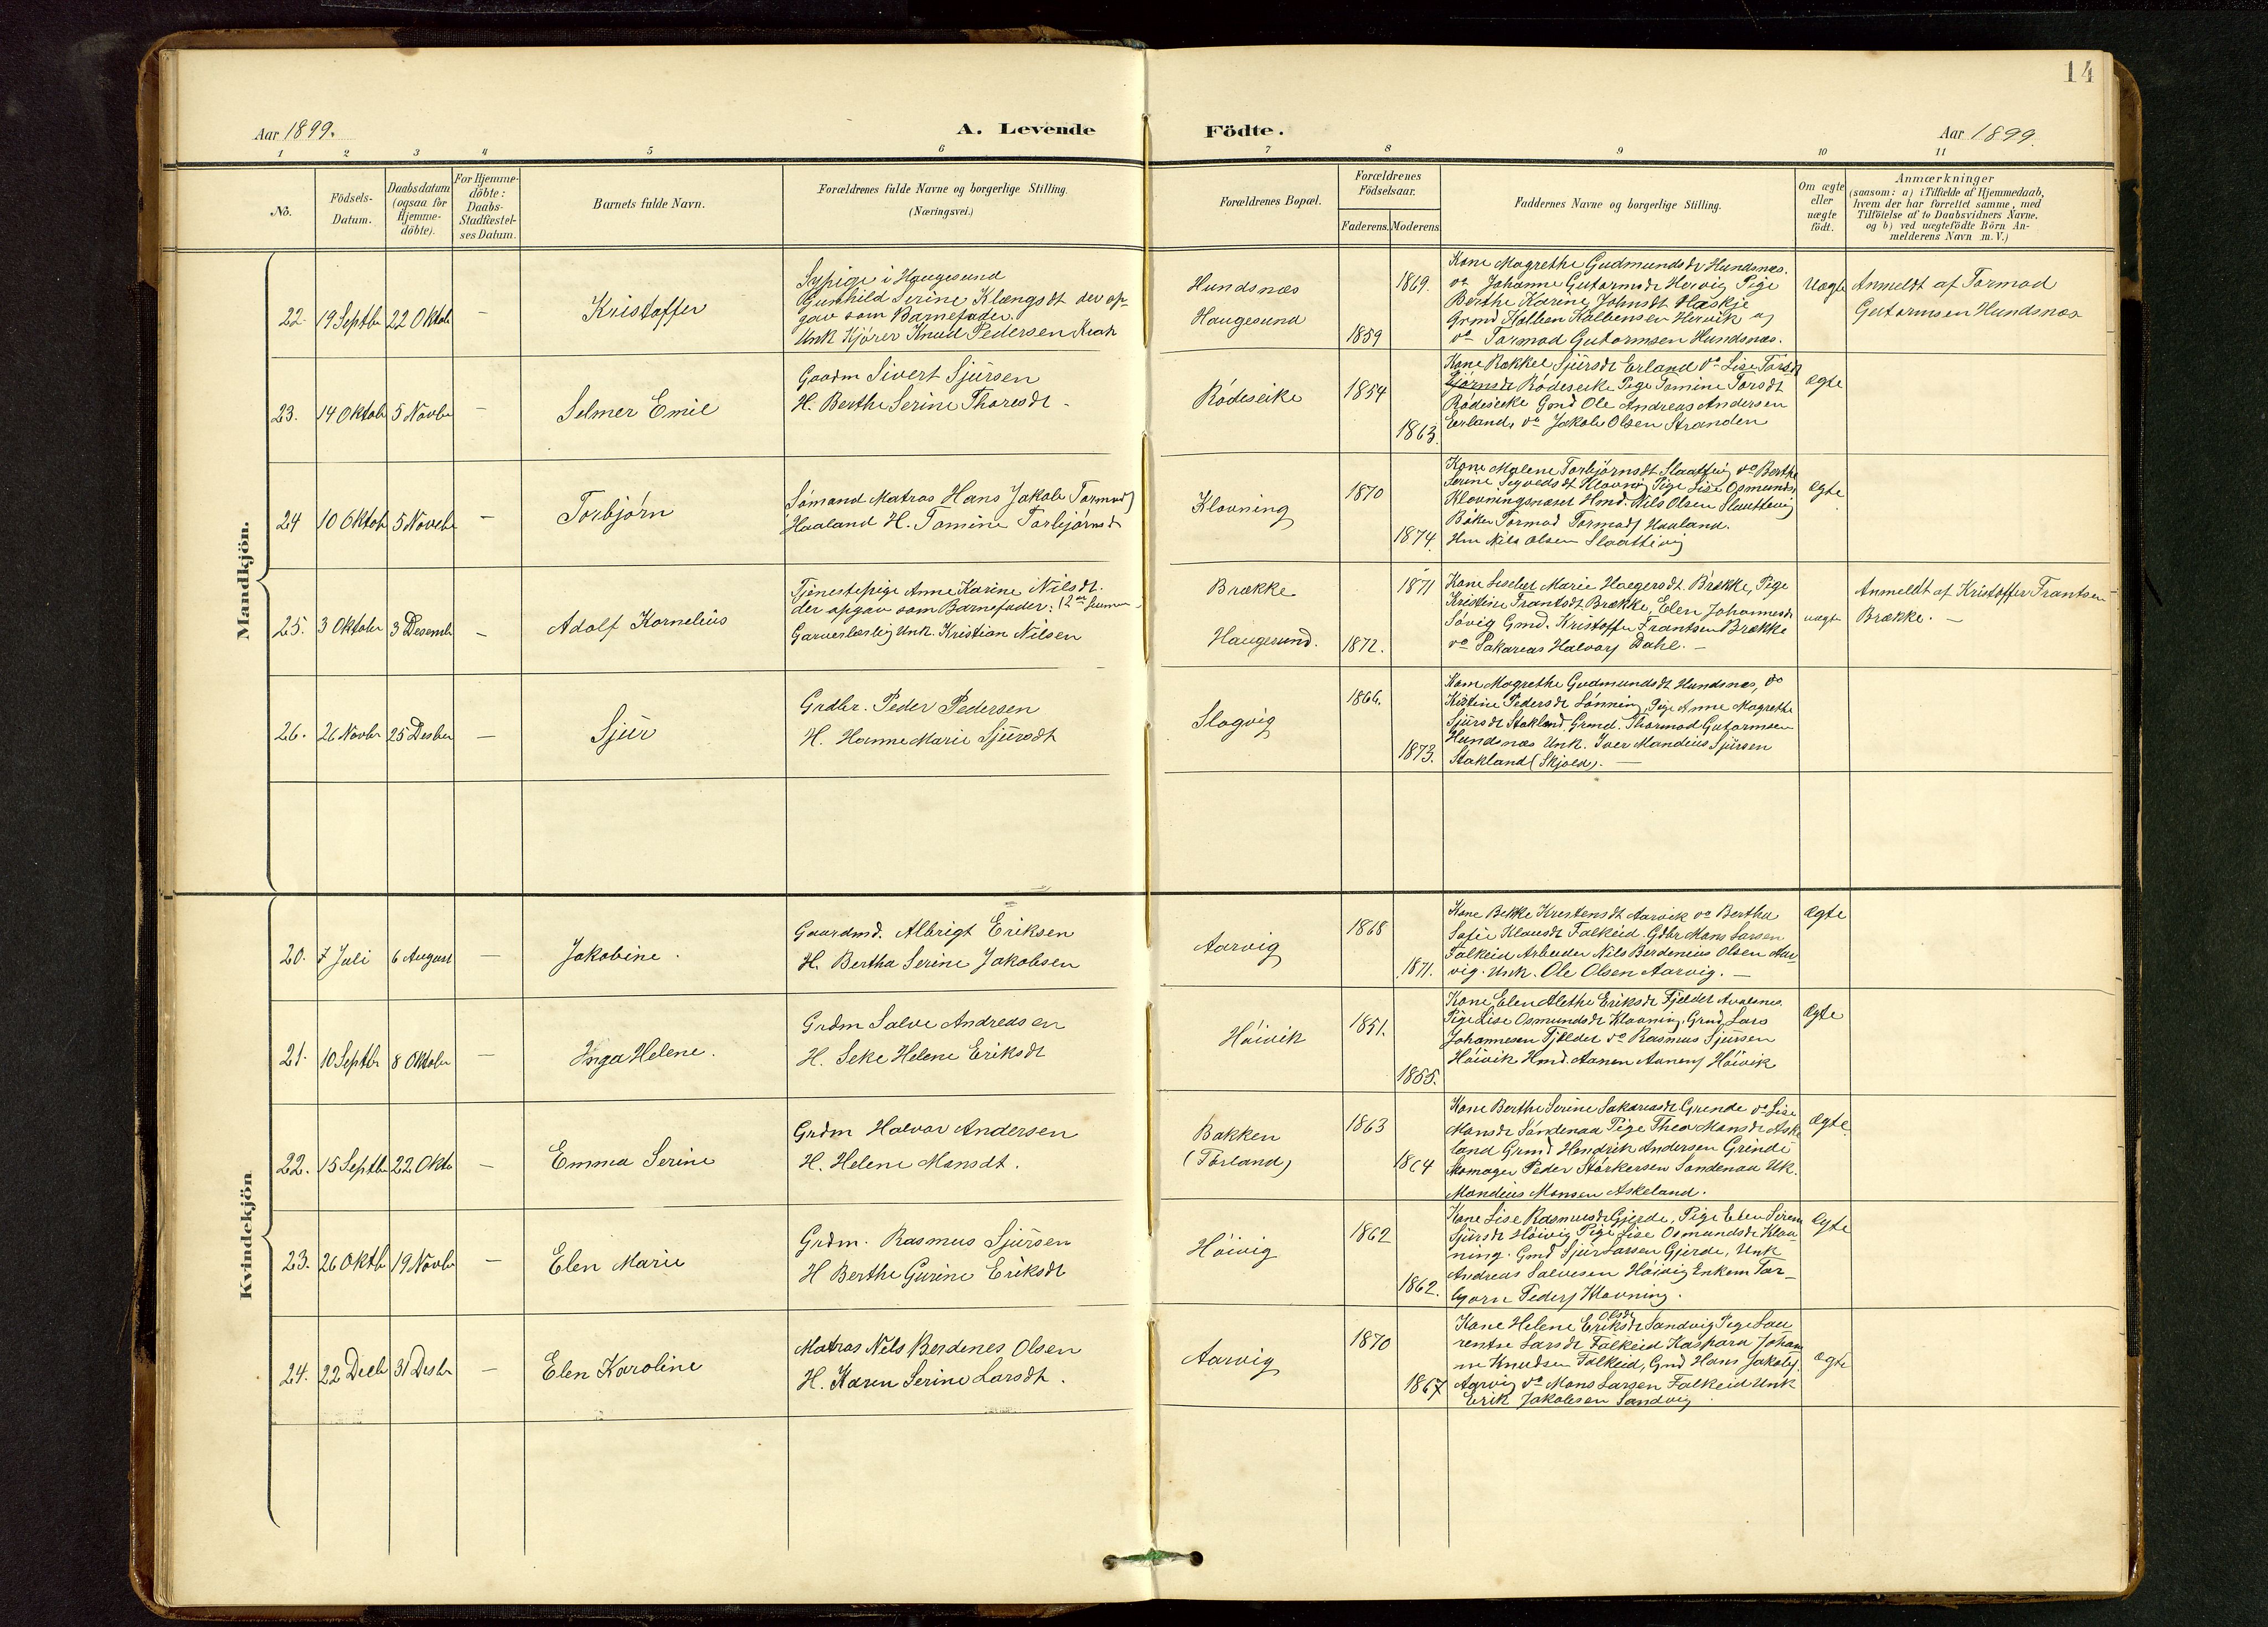 14
Aar 1899.
A. Levende Födte.
Aar 1899.
1 2 3 4 5 6 7 8 9 10 11
No.
Födsels-
Datum.
Daabsdatum
(ogsaa for
Hjemme-
döbte).
For Hjemme-
döbte:
Daabs-
Stadfæstel-
ses Datum.
Barnets fulde Navn.
Forældrenes fulde Navne og borgerlige Stilling.
(Næringsvei.)
Forældrenes Bopæl.
Forældrenes
Födselsaar.
Faderens. Moderens.
Faddernes Navne og borgerlige Stilling.
Om ægte
eller
uægte
födt.
Anmærkninger
(saasom: a) i Tilfælde af Hjemmedaab,
hvem der har forrettet samme, med
Tilföielse af to Daabsvidners Navne.
og b) ved uægtefödte Börn An-
melderens Navn m. V.)
Mandkjön.
22. 19 Septbr 22 Oktob – Kristoffer
Sypige i Haugesund
Gunhild Serine Klængsdt der op-
gav som Barnefader:
Unk Kjører Knud Pedersen
Hundsnæs
Haugesund
1869.
1859
Kone Magrethe Gudmundsdt Hundsnæs.
do Johanne Gutormsdt Hervig Pige
Berthe Karine Johnsdt Hæskje
Grmd Kolben Kolbensen Hervik og
do Tormod Gutormsen Hundsnæs.
Uægte
Anmeldt af Tormod
Gutormsen Hundsnæs
23. 14 Oktob 5 Novbr – Selmer Emil
Gaardm Sivert Sjursen
H. Berthe Serine Thoresdt –
Rödseike
1854
1863.
Kone Rakkel Sjursdt Erland do Lise Torsdt
Rödeseike Pige Tomine Torsdt
Rödeseike Gmd Ole Andreas Andersen
Erland, do Jakob Olsen Stranden
Ægte
24 10 Oktob 5 Novebr – Torbjørn
Sömand Matros Hans Jakob Tormods
Haaland H. Tomine Torbjørnsdt
Klovning
1870
1874.
Kone Malene Torbjørnsdt Slaattevig do Berthe
Serine Sigvedsdt Klovning Pige Lise Osmundsd
Klovningsnæset Hmd. Nils Olsen Slaattevig
Böker Tormod Tormods Haaland.
Hm Nils Olsen Slaattevig
Ægte
25. 3 Oktober 3 Desemb – Adolf Kornelius
Tjenestepige Anne Karine Nilsdt.
der opgav som Barnefader: (2den
Unk. Kristian Nilsen
Brække
Haugesund.
1871
1872.
Kone Lisebet Marie Haagersdt Brække, Pige
Kristine Frantsdt Brække, Elen Johannesdt
Søvig Gmd. Kristoffer Frantsen Brække
do Sakarias Halvors Dahl. –
uægte
Anmeldt af Kristoffer Frantsen
Brække. –
26. 26 Novbr 25 Desber – Sjur
Grdbr. Peder Pedersen
H. Hanne Marie Sjursdt
Slogvig
1866.
1873.
Kone Magrethe Gudmundsdt Hundsnæs, do
Kistine Pedersdt Lönning, Pige Anne Magrethe
Sjursdt Stakland. Grmd. Thormod Gutormsen
Hundsnæs Unk. Iver Mandius Sjursen
Stakland (Skjold). –
Kvindekjön
20. 7 Juli 6 August – Jakobine.
Gaardmd. Albrigt Eriksen
H. Bertha Serine Jakobsen
Aarvig
1868
1871.
Kone Bekke Kristensdt Aarvik do Bertha
Sofie Klausdt Falkeid. Gdbr Mons Larsen
Falkeid Arbeider Nils Berdenius Olsen Aar
vig. Unk. Ole Olsen Aarvig. –
Ægte
21. 10 Septbr 8 Oktober – Inga Helene.
Grdm Salve Andreasen
H. Seke Helene Eriksdt
Höivik
1851.
1855.
Kone Elen Alethe Eriksdt Fjeldet Avalsnes
Pige Lise Osmundsdt Klovning, Grmd Lars
Johannesen Fjeldet do Rasmus Sjursen
Höivik Hmd. Aanen Aanens Höivik
Ægte
22. 15 Septbr 22 Okto – Emma Serine
Grdm Halvor Andersen
H. Helene Monsdt.
Bakken
(Førland)
1863
1864
Kone Berthe Serine Sakariasdt Grinde do Lise
Monsdt Söndenaa Pige Thea Monsdt Aske
land Grmd Hendrik Andersen Grinde
Skomager Peder Størkersen Söndenaa Uk.
Mandius Monsen Askeland.
Ægte
23. 26 Oktb 19 Novbr – Elen Marie
Grdm. Rasmus Sjursen
H Berthe Gurine Eriksdt
Höivig
1862
1862.
Kone Lise Rasmusdt Gjerde, Pige Elen Serine
Sjursdt Höivig Pige Lise Osmundsdt Klov
ning. Gmd Sjur Larsen Gjerde, Unk
Andreas Salvesen Höivig Enkem Tor_
bjorn Peders Klovning.
Ægte
24. 22 Decb 31 Desbr – Elen Karoline
Matros Nils Berdenes Olsen
H. Karen Serine Larsdt.
Aarvig
1870
1867
Olsdt
Kone Helene Eriksdt Sandvig Pige Lau
rentse Larsdt Falkeid Kaspara Johan
ne Knudsen Falkeid, Gmd Hans Jakobs.
Aarvig do Mons Larsen Falkeid Unk
Erik Jakobsen Sandvig
Ægte